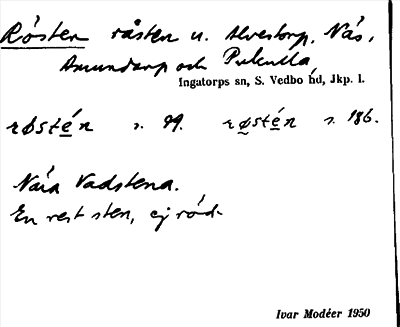 Rösten råsten u. Alvestorp, Näs,
Amundarp och Pukulla,
Ingatorps sn, S. Vedbo hd, Jkp. l.
røstén s. 99. røstén s. 186.
Nära Vadstena.
En rest sten, ej röd.
Ivar Modéer 1950